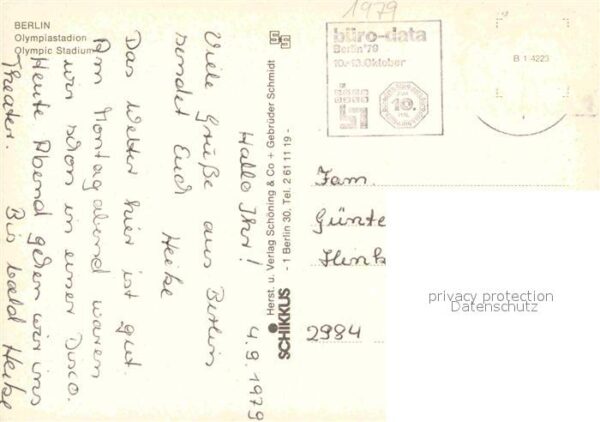 BERLIN
Olympiastadion
Olympic Stadium
4.9.1979
Hallo Ihr!
Viele Grüße aus Berlin
sendet Euch Heike
Das Wetter hier ist gut.
Am Montag abend waren
wir schon in einer Disco.
Heute Abend gehen wir ins
Theater. Bis bald Heike
SCHIKKUS
Herst. u. Verlag Schöning & Co + Gebrüder Schmidt
- 1 Berlin 30, Tel. 2 61 11 19 -
1979
büro-data
Berlin '79
10.-13. Oktober
10.
B 1-4223
Fam.
Günte
Hink
2984
privacy protection
Datenschutz